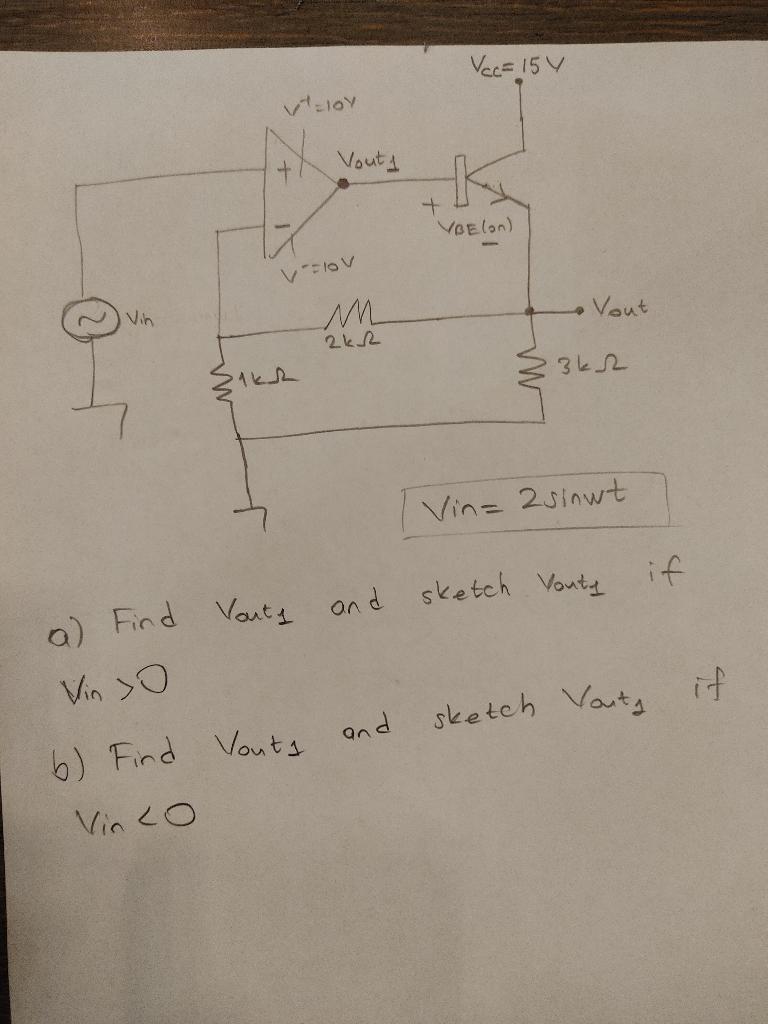 Vcc= 15V
V+=10V
+
Vout1
+
VBE(on)
-
V-=10V
Vin
2kΩ
Vout
1kΩ
3kΩ
Vin= 2sinwt
a) Find Vout1 and sketch Vout1 if
Vin >0
b) Find Vout1 and sketch Vout1 if
Vin <0